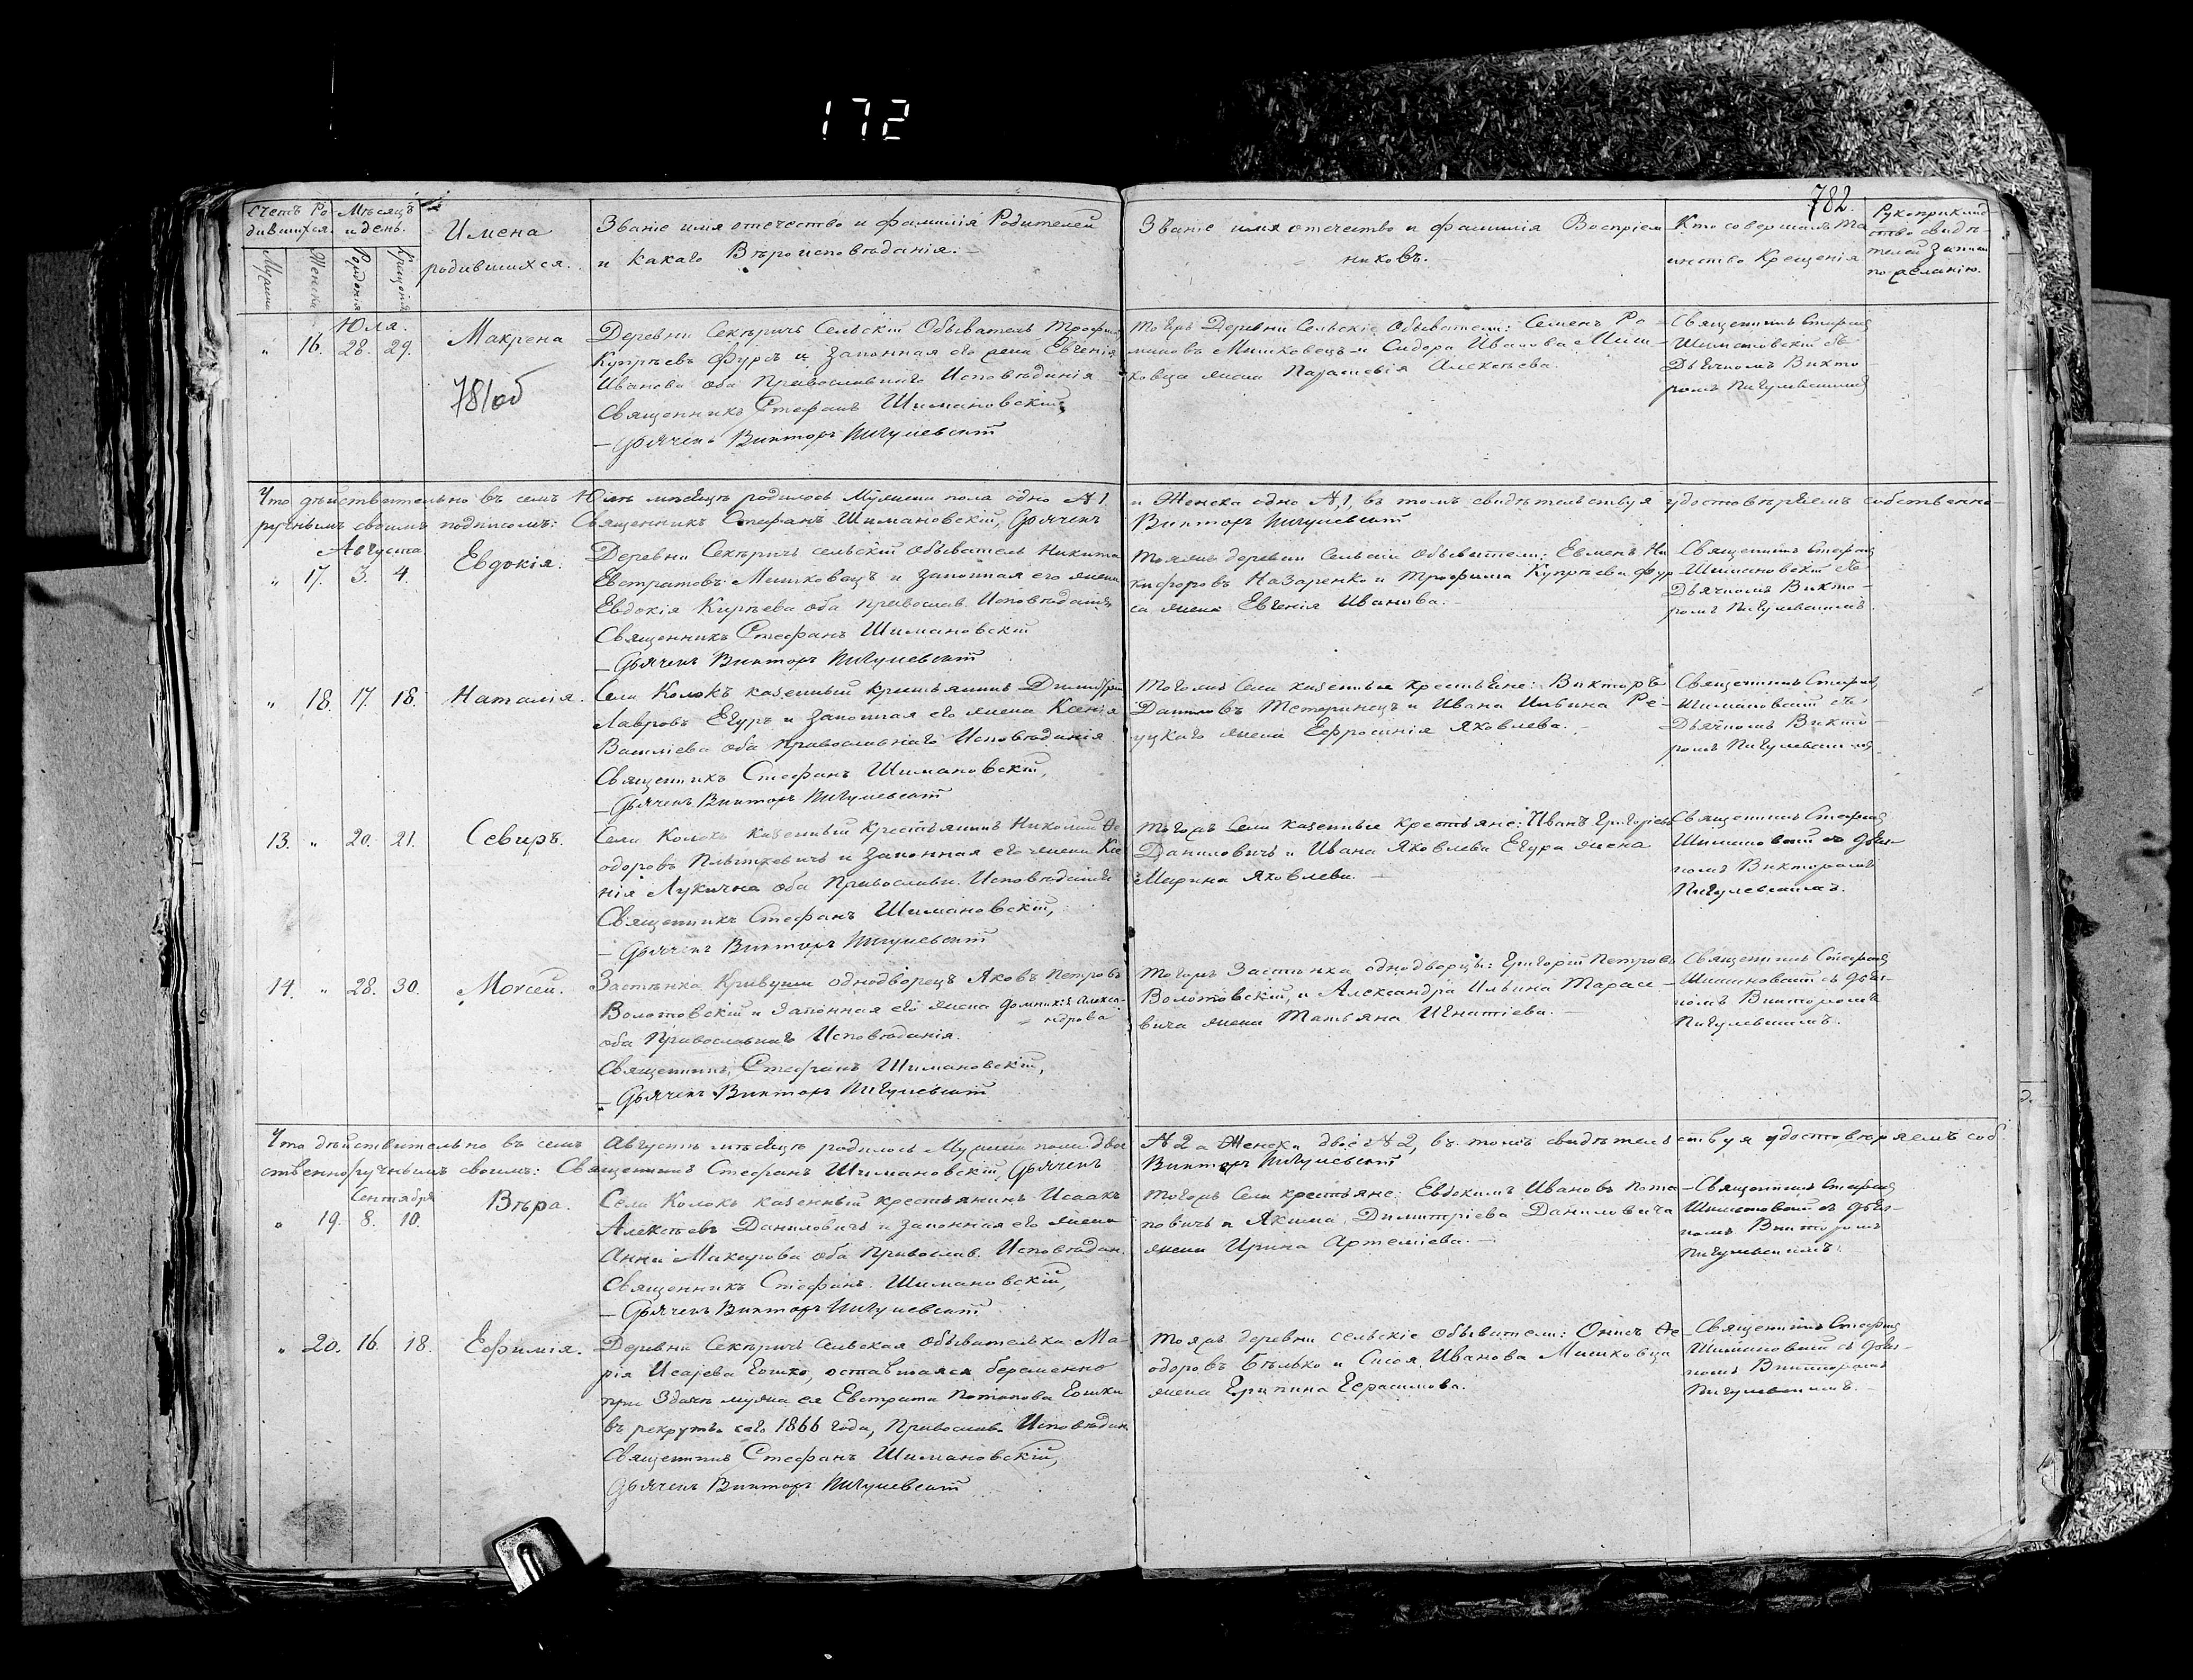 172
782.
Счетъ Ро-
дившихся.
Мѣсяцъ
и день.
Мужска
Женска
Рожденія
Крещенія
Имена
родившихся.
Званіе имя отечество и фамилія Родителей
и какого Вѣроисповѣданія.
Званіе имя отечество и фамилія Воспріем-
никовъ.
Кто совершалъ Та
инство Крещенія
Рукоприклад
ство свидѣ-
телей записи
по желанію.
Юля.
" 16. 28. 29.
Макрена
781об
Деревни Секѣричъ Сельскій Обыватель Трофимъ
Купрѣевъ Фурсъ и законная его жена Евгенія
Иванова оба Православнаго Исповѣданія
Священникъ Стефанъ Шимановскій,
— Дьячекъ Викторъ Пигулевскій
Тоежъ Деревни Сельскіе Обыватели: Семенъ Ро-
мановъ Мишковецъ и Сидора Иванова Миш-
ковца жена Параскевія Алексѣева.
Священникъ Стефанъ
Шимановскій съ
Дьячкомъ Викто-
ромъ Пигулевскимъ
Что дѣйствительно въ семъ Юлѣ мѣсяцѣ родилось Мужеска пола одно №1 и Женска одно №1, въ томъ свидѣтельствуя удостовѣряемъ собственно-
ручнымъ своимъ подписомъ: Священникъ Стефанъ Шимановскій, Дьячекъ Викторъ Пигулевскій
Августа
" 17. 3. 4.
Евдокія.
Деревни Секѣричъ сельскій обыватель Никита
Евстратовъ Мишковецъ и законная его жена
Евдокія Кирѣева оба православ. Исповѣданія
Священникъ Стефанъ Шимановскій
— Дьячекъ Викторъ Пигулевскій
Тояжъ деревни Сельскіи Обыватели: Евменъ Ни
кифоровъ Назаренко и Трофима Купрѣева Фур
са жена Евгенія Иванова.
Священникъ Стефанъ
Шимановскій съ
Дьячкомъ Викто-
ромъ Пигулевскимъ.
" 18. 17. 18.
Наталія.
Села Колокъ казенный крестьянинъ Димитрій
Лавровъ Егуръ и законная его жена Ксенія
Василіева оба Православнаго Исповѣданія
Священникъ Стефанъ Шимановскій,
— Дьячекъ Викторъ Пигулевскій
Тогожъ Села казенные крестьяне: Викторъ
Даниловъ Тетеринецъ и Ивана Ильина Ре-
уцкаго жена Ефросинія Яковлева.
Священникъ Стефанъ
Шимановскій съ
Дьячкомъ Викто-
ромъ Пигулевскимъ
13. " 20. 21.
Севиръ.
Села Колокъ казенный крестьянинъ Николай Ѳе
одоровъ Плышкевичъ и законная его жена Ксе
нія Лукична оба Православн. Исповѣданія
Священникъ Стефанъ Шимановскій,
— Дьячекъ Викторъ Пигулевскій
Тогожъ Села казенные крестьяне: Иванъ Григоріевъ
Даниловичъ и Ивана Яковлева Егура жена
Марина Яковлева.
Священникъ Стефанъ
Шимановскій съ дьяч-
комъ Викторомъ
Пигулевскимъ.
14. " 28. 30.
Моѵсей.
Застѣнка Кривуши однодворецъ Яковъ Петровъ
Волотовскій и законная его жена Домникія Алекса-
ндрова
оба Православнаго Исповѣданія.
Священникъ Стефанъ Шимановскій,
— Дьячекъ Викторъ Пигулевскій
Тогожъ Застѣнка однодворцы: Григорій Петровъ
Волотовскій, и Александра Ильина Тарасе-
вича жена Татьяна Игнатіева.
Священникъ Стефанъ
Шимановскій съ дьяч-
комъ Викторомъ
Пигулевскимъ.
Что дѣйствительно въ семъ Августѣ мѣсяцѣ родилось Мужеска пола двое №2 а Женска двое №2, въ томъ свидѣтельствуя удостовѣряемъ соб-
ственноручнымъ своимъ: Священникъ Стефанъ Шимановскій, Дьячекъ Викторъ Пигулевскій
Сентября
" 19. 8. 10.
Вѣра.
Села Колокъ казенный крестьянинъ Исаакъ
Алексѣевъ Даниловичъ и законная его жена
Анна Макарова оба Православ. Исповѣдан.
Священникъ Стефанъ Шимановскій,
— Дьячекъ Викторъ Пигулевскій
Тогожъ Села крестьяне: Евдокимъ Ивановъ Пота-
повичъ и Якима Димитріева Даниловича
жена Ирина Артеміева.
Священникъ Стефанъ
Шимановскій съ дьяч-
комъ Викторомъ
Пигулевскимъ.
" 20. 16. 18.
Ефимія.
Деревни Секѣричъ Сельская обывателька Ма-
рія Исаева Гошко, оставшаяся беременно
при здачѣ мужа ея Евстрата Потапова Гошки
въ рекруты сего 1866 года, Православ. Исповѣдан.
Священникъ Стефанъ Шимановскій,
Дьячекъ Викторъ Пигулевскій
Тояжъ деревни сельскіе обыватели: Ѳе-
одоровъ Бѣлько и Иванова Мишковца
жена Герасимова.
Священникъ Стефанъ
Шимановскій съ дьяч-
комъ Викторомъ
Пигулевскимъ.